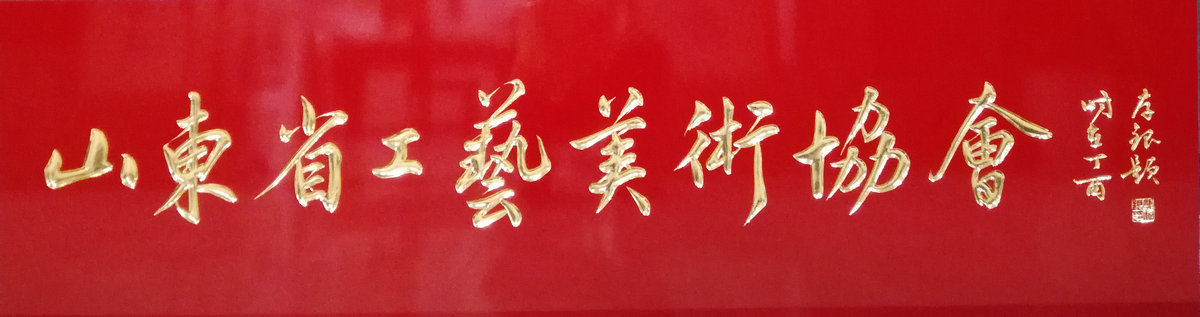 山東省工藝美術協會
存銀題
時在丁酉